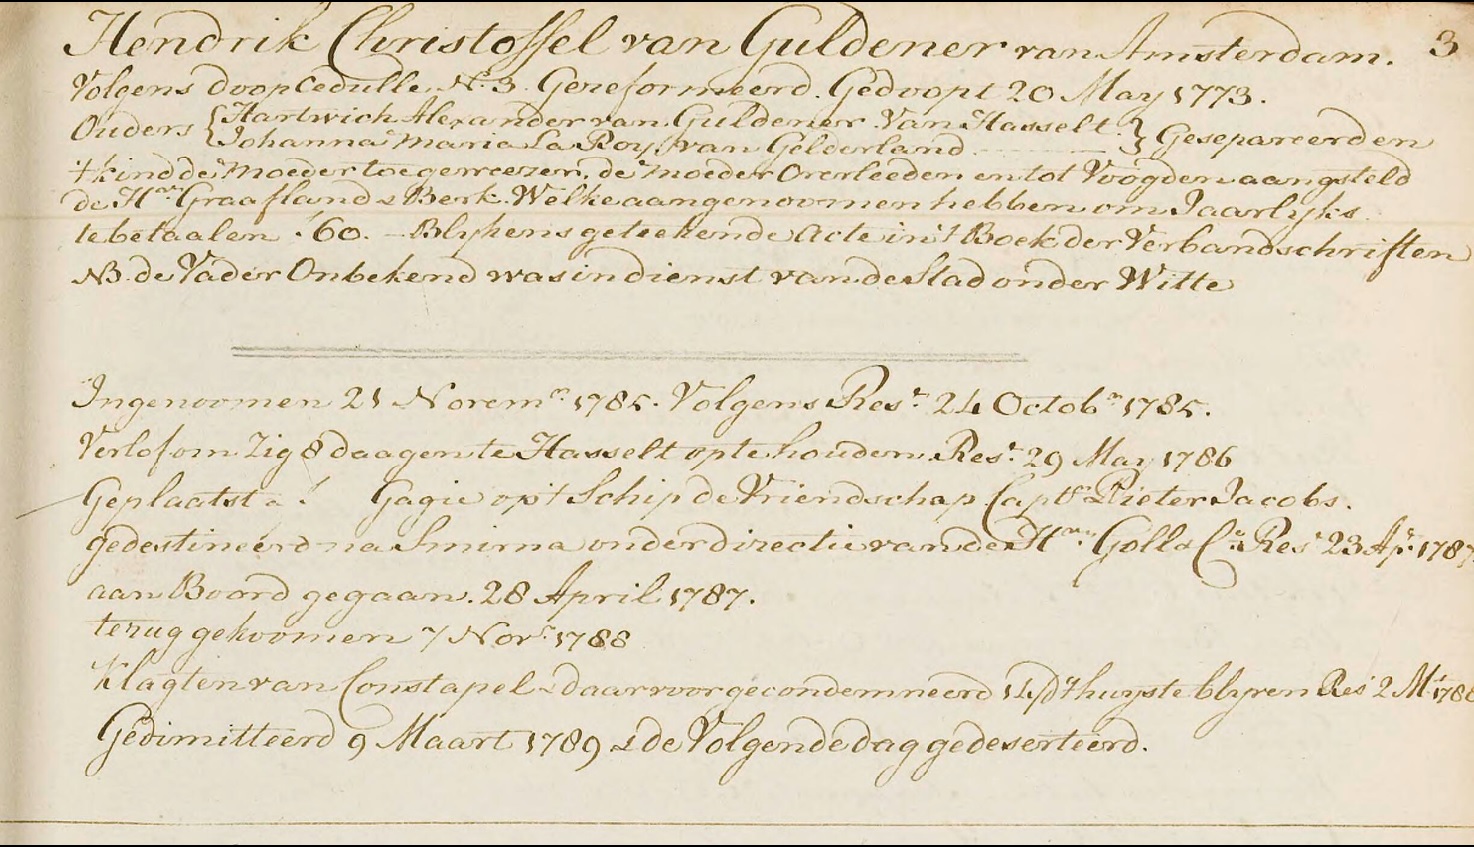 Hendrik Christoffel van Guldener van Amsterdam. 3
Volgens doop Cedulle N: 3. Gereformeerd. Gedoopt 20 May 1773.
Ouders { Hartwich Alexander van Guldener Van Hasselt } Gesepareerd en
Johanna Maria La Roy, van Gelderland
't kind de Moeder toegeweezen, de Moeder Overleeden en tot Voogden aangesteld
de Hrn Graafland & Berk. Welke aangenoomen hebben om Jaarlyks
te betaalen ƒ60.- Blykens geteekende Acte in't Boek der Verbandschriften
NB. de Vader Onbekend was in dienst van de Stad onder Witte
Ingenoomen 21 Novemr 1785. Volgens Rest 24 Octobr 1785.
Verlof om Zig 8 daagen te Hasselt op te houden. Rest 29 May 1786
Geplaatst a ƒ Gagie op't Schip de Vriendschap Captn Pieter Jacobs.
gedestineerd na Smirna onder directie van de Hrn Goll & Co Rest 23 Apr: 1787
aan Boord gegaan. 28 April 1787.
terug gekoomen 7 Novr 1788
Klagten van Constapel & daarvoor gecondemneerd 14/d t'huys te blyven Rest 2 Mt 1788
Gedimitteerd 9 Maart 1789 & de Volgende dag gedeserteerd.